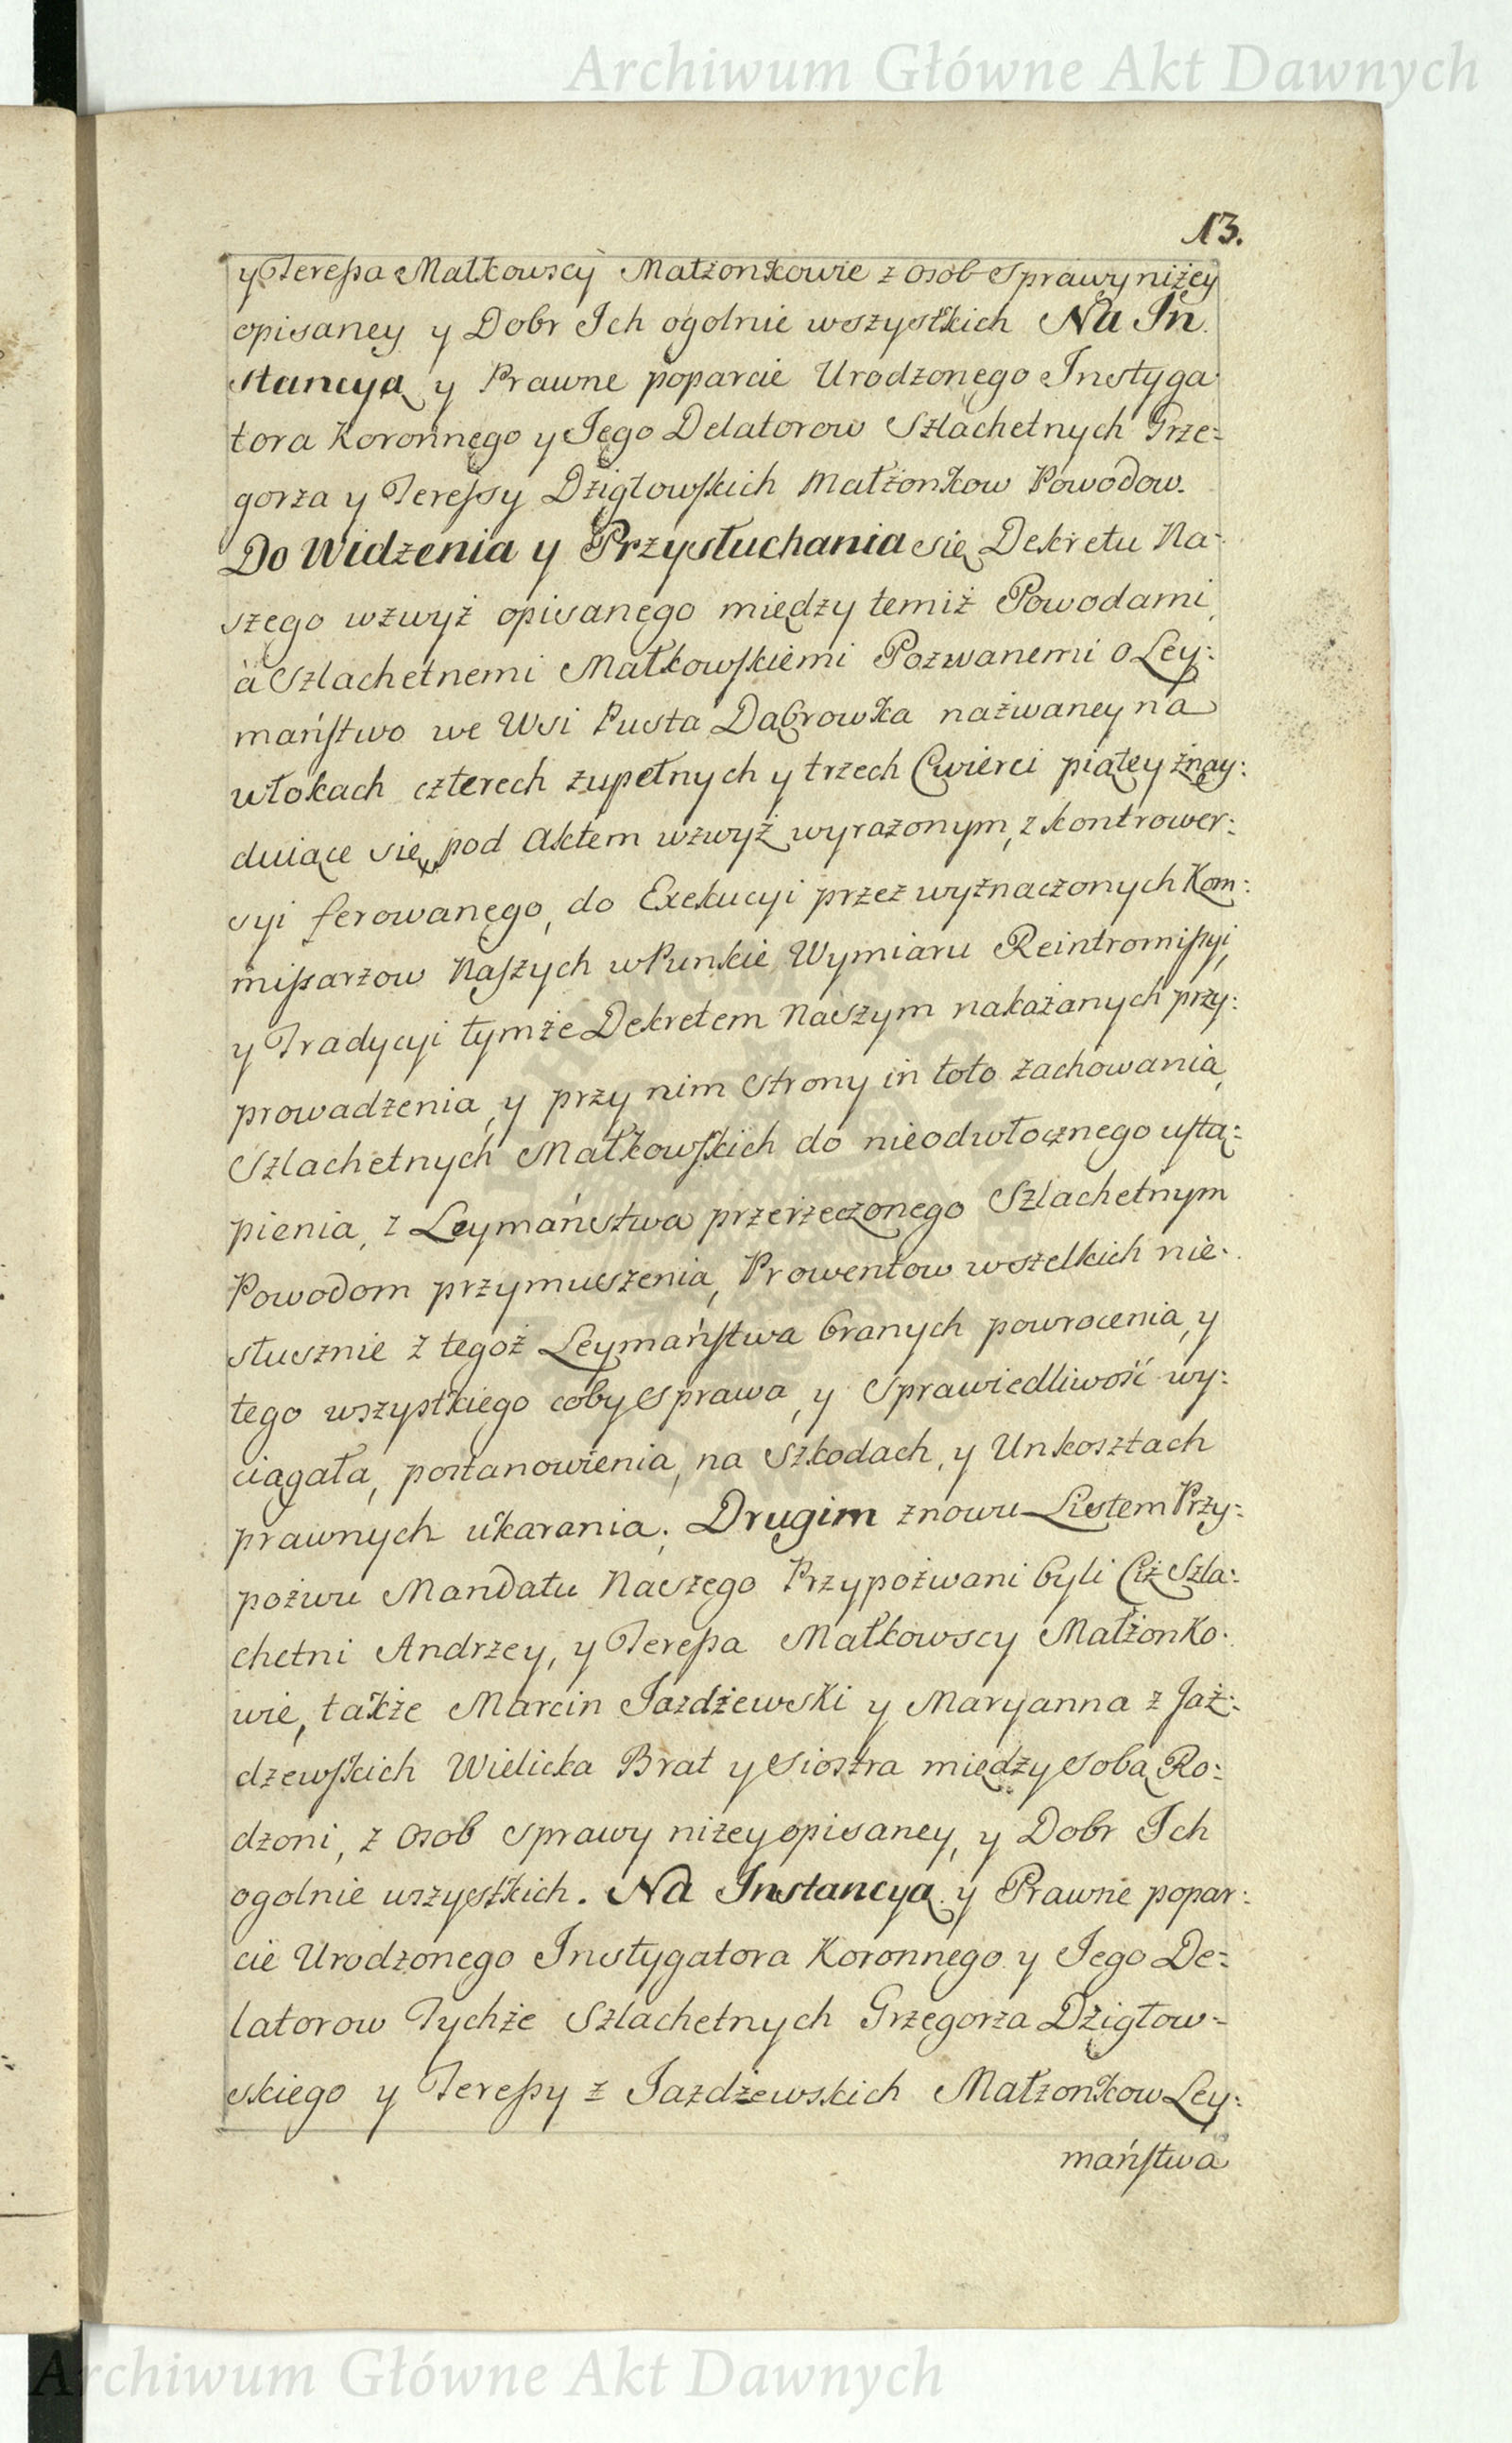 Archiwum Główne Akt Dawnych
13.
y Teressa Małkowscy Małżonkowie z osob Sprawy niżey
opisaney y Dobr Ich ogolnie wszystkich Na In
stancyą y Prawne poparcie Urodzonego Instyga
tora Koronnego y Jego Delatorow Szlachetnych Grze-
gorza y Teressy Dzigłowskich Małżonkow Powodow.
Do Widzenia y Przysłuchania się Dekretu Na-
szego wzwyż opisanego między temiż Powodami,
à Szlachetnemi Małkowskiemi Pozwanemi o Ley:
maństwo we Wsi Pusta Dąbrowka nazwaney na
włokach czterech zupełnych y trzech Cwierci piątey znay:
duiące się, pod Aktem wzwyż wyrażonym, z kontrower:
syi ferowanego, do Exekucyi przez wyznaczonych Kom:
missarzow Naszych w Punkcie Wymiaru Reintromissyi,
y Tradycyi tymże Dekretem Naszym nakazanych przy:
prowadzenia, y przy nim Strony in toto zachowania,
Szlachetnych Małkowskich do nieodwłocznego ustą:
pienia, z Leymaństwa przerzeczonego Szlachetnym
Powodom przymuszenia, Prowentow wszelkich nie-
słusznie z tegoż Leymaństwa branych powrocenia, y
tego wszystkiego coby Sprawa, y Sprawiedliwość wy:
ciągała, postanowienia, na Szkodach, y Unkosztach
prawnych ukarania; Drugim znowu Listem Przy:
pozwu Mandatu Naszego Przypozwani byli Ciż Szla:
chetni Andrzey, y Teressa Małkowscy Małżonko-
wie, także Marcin Jazdżewski y Maryanna z Jaż:
dzewskich Wielicka Brat y Siostra między Sobą Ro:
dzoni, z Osob Sprawy niżey opisaney, y Dobr Ich
ogolnie wszystkich. Na Instancyą y Prawne popar:
cie Urodzonego Instygatora Koronnego y Jego De-
latorow Tychże Szlachetnych Grzegorza Dzigłow-
skiego y Teressy z Jazdżewskich Małżonkow Ley:
maństwa
Archiwum Główne Akt Dawnych